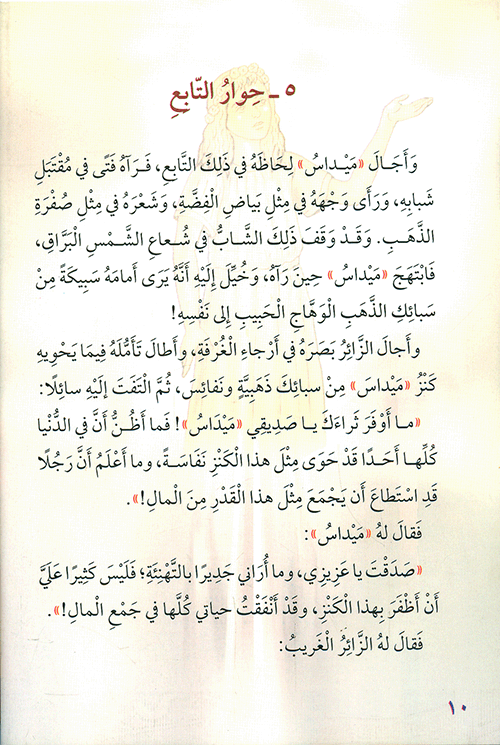 ٥ - حِوارُ التّابِعِ
وَأَجَالَ «مَيْداسُ» لِحَاظَهُ في ذَلِكَ التَّابِعِ، فَرَآهُ فَتًى في مُقْتَبَلِ
شَبابِهِ، وَرَأَى وَجْهَهُ في مِثْلِ بَيَاضِ الْفِضَّةِ، وَشَعْرَهُ في مِثْلِ صُفْرَةِ
الذَّهَبِ. وَقَدْ وَقَفَ ذَلِكَ الشَّابُّ في شُعاعِ الشَّمْسِ الْبَرَّاقِ،
فَابْتَهَجَ «مَيْداسُ» حِينَ رَآهُ، وَخُيِّلَ إِلَيْهِ أَنَّهُ يَرَى أَمامَهُ سَبِيكَةً مِنْ
سَبائِكِ الذَّهَبِ الْوَهَّاجِ الْحَبِيبِ إِلى نَفْسِهِ!
وأَجالَ الزَّائِرُ بَصَرَهُ في أَرْجاءِ الْغُرْفَةِ، وأَطالَ تَأَمُّلَهُ فِيمَا يَحْوِيهِ
كَنْزُ «مَيْداسَ» مِنْ سبائِكَ ذَهَبِيَّةٍ ونَفائِسَ، ثُمَّ الْتَفَتَ إِلَيْهِ سائِلًا:
«ما أَوْفَرَ ثَراءَكَ يا صَدِيقِي «مَيْدَاسُ»! فَما أَظُنُّ أَنَّ في الدُّنْيا
كُلِّها أَحَدًا قَدْ حَوَى مِثْلَ هذا الْكَنْزِ نَفَاسَةً، وما أَعْلَمُ أَنَّ رَجُلًا
قَدِ اسْتَطاعَ أَن يَجْمَعَ مِثْلَ هذا الْقَدْرِ مِنَ الْمالِ!».
فَقالَ لهُ «مَيْداسُ»:
«صَدَقْتَ يا عَزِيزِي، وما أُرَاني جَدِيرًا بالتَّهْنِئَةِ؛ فَلَيْسَ كَثِيرًا عَلَيَّ
أَنْ أَظْفَرَ بِهذا الْكَنْزِ، وقَدْ أَنْفَقْتُ حياتي كُلَّها في جَمْعِ الْمالِ!».
فَقالَ له الزَّائِرُ الْغَرِيبُ:
١٠